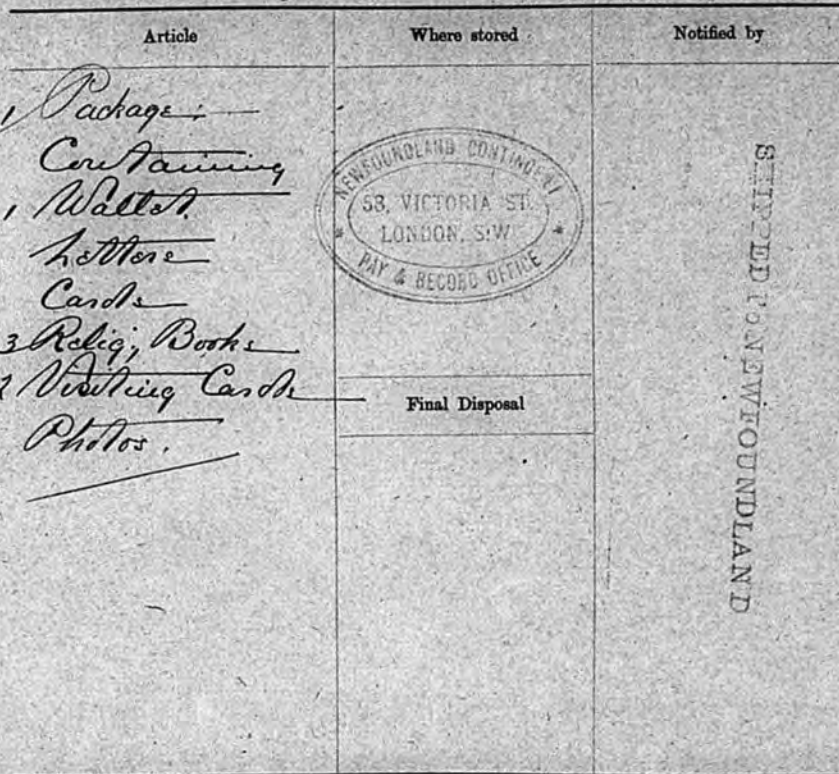 Article
1 Package:
Containing
1 Wallet.
Letters
Cards
3 Relig, Books
2 Visiting Cards
Photos.
Where stored
NEWFOUNDLAND CONTINGENT
58, VICTORIA ST.
LONDON, S.W.
PAY & RECORD OFFICE
Final Disposal
Notified by
SHIPPED TO NEWFOUNDLAND